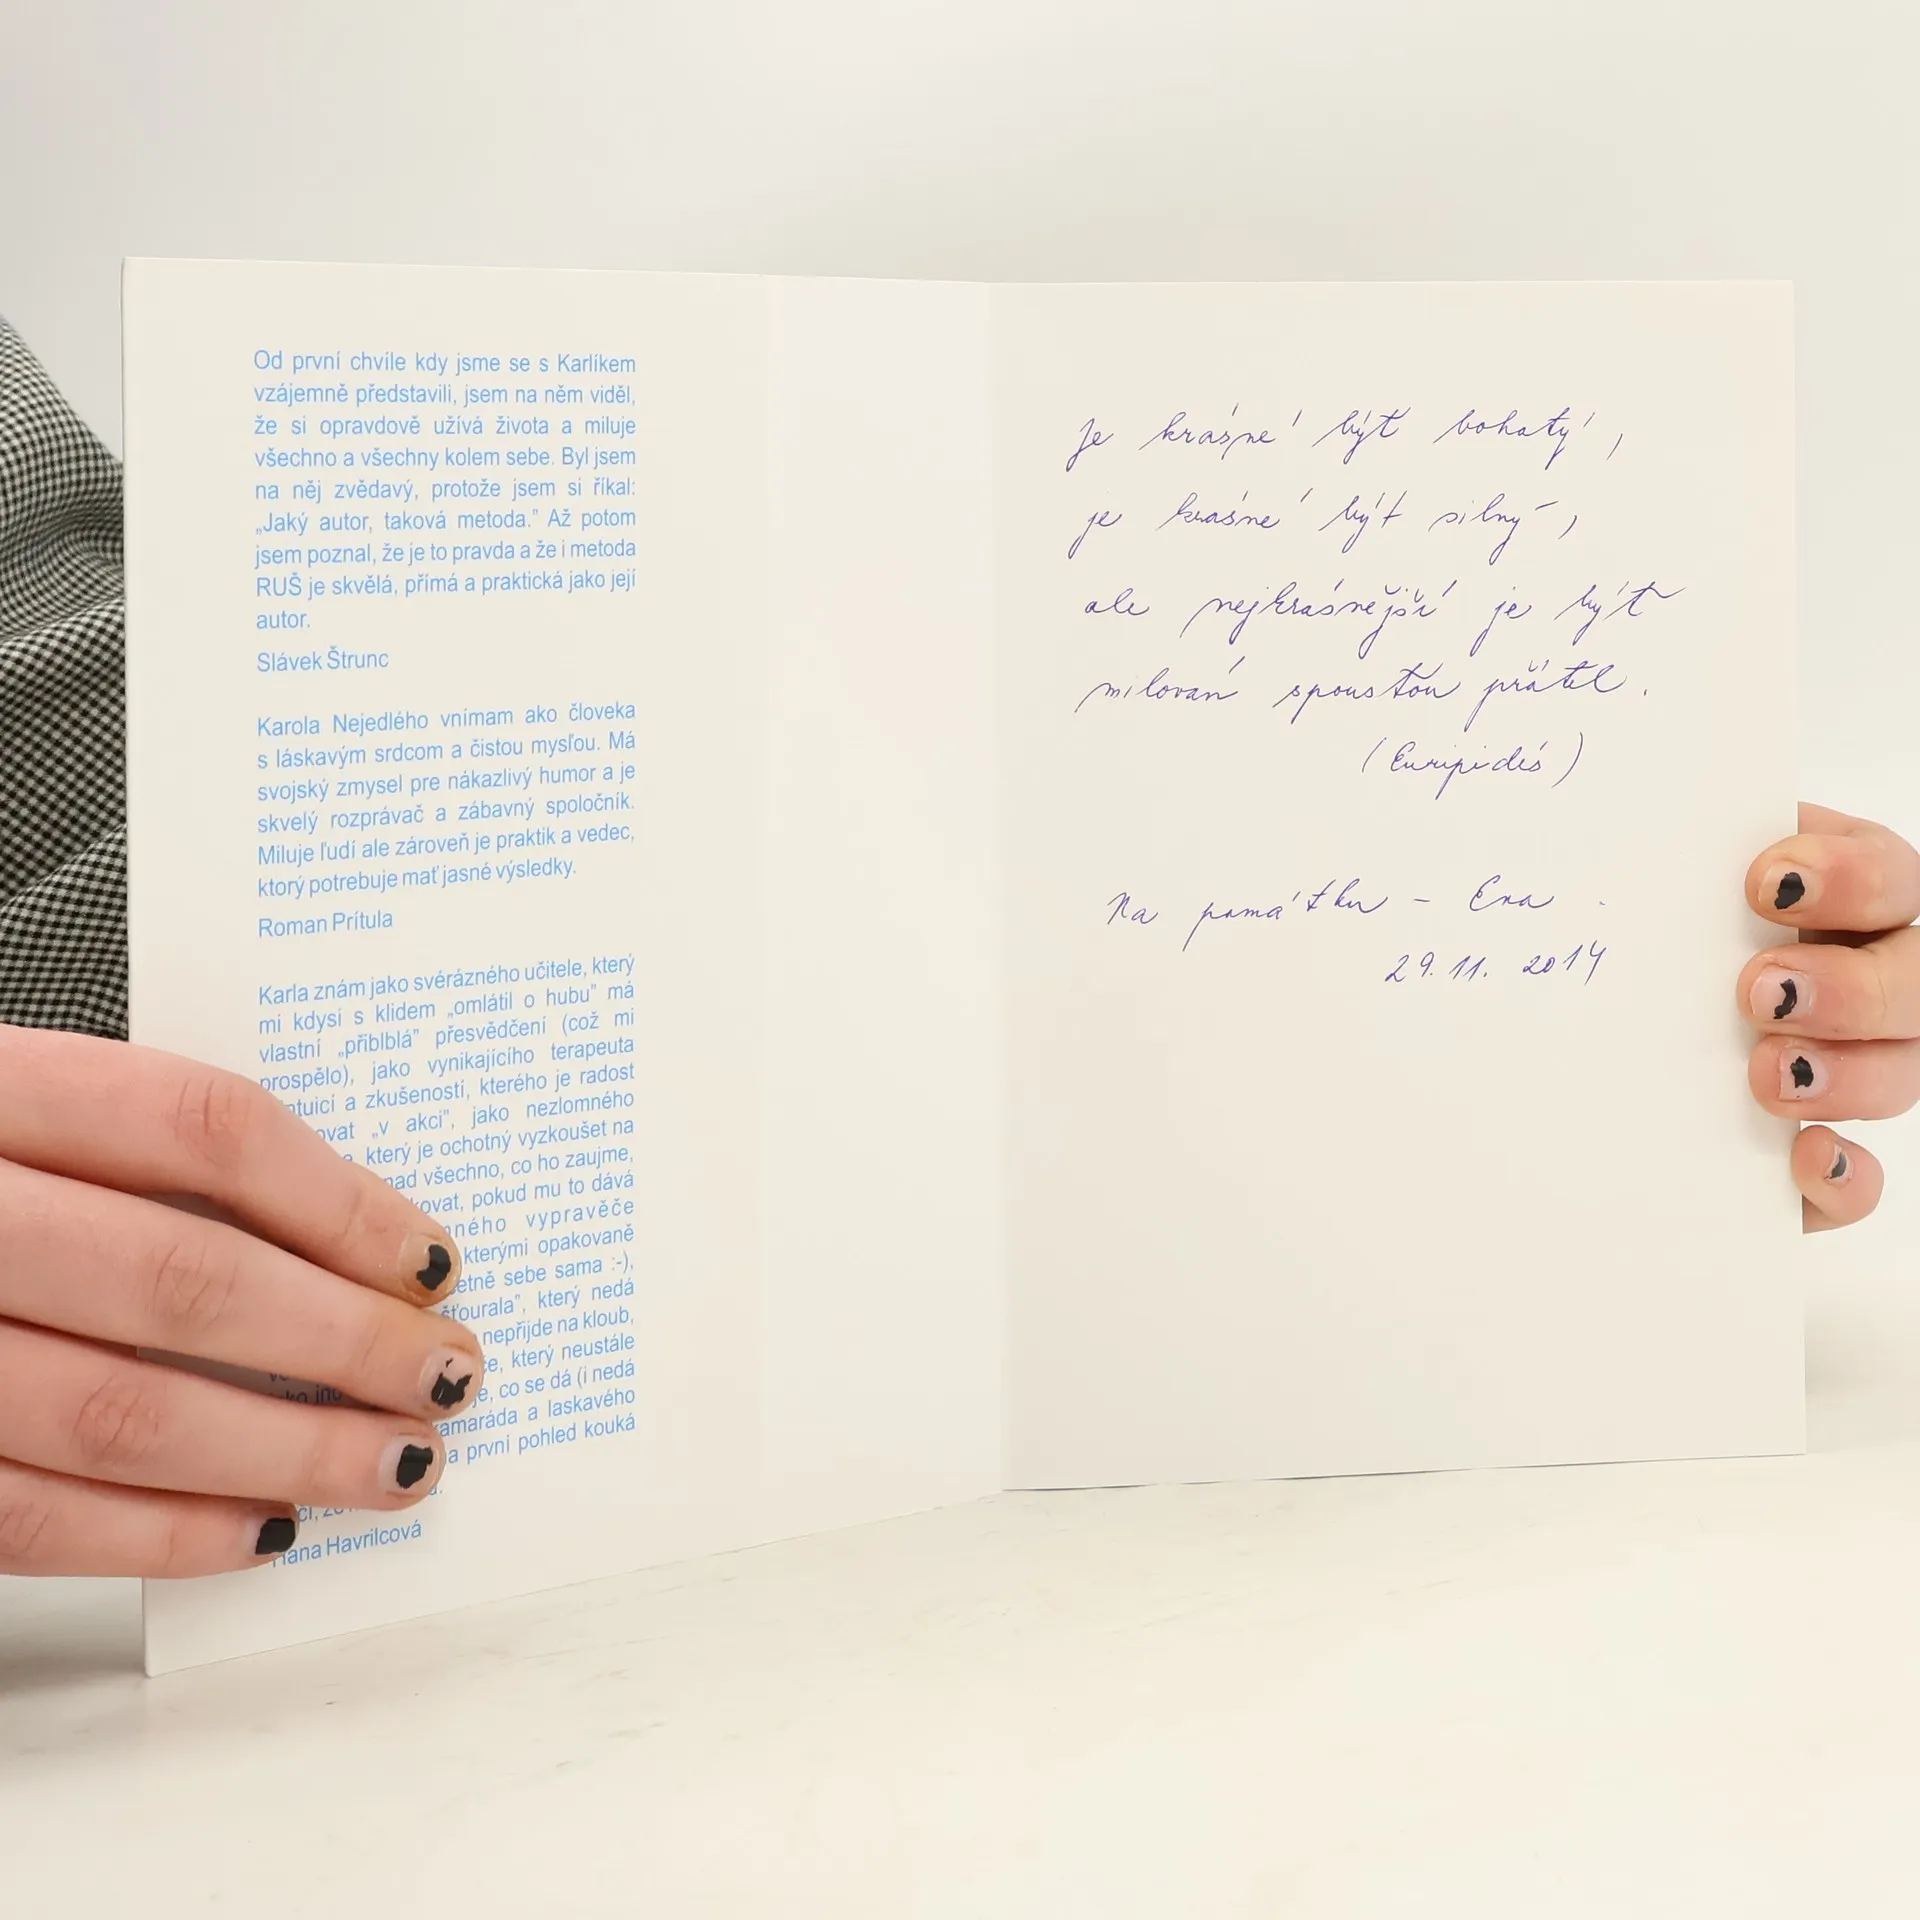 Od první chvíle kdy jsme se s Karlíkem
vzájemně představili, jsem na něm viděl,
že si opravdově užívá života a miluje
všechno a všechny kolem sebe. Byl jsem
na něj zvědavý, protože jsem si říkal:
„Jaký autor, taková metoda.” Až potom
jsem poznal, že je to pravda a že i metoda
RUŠ je skvělá, přímá a praktická jako její
autor.
Slávek Štrunc
Karola Nejedlého vnímam ako človeka
s láskavým srdcom a čistou mysľou. Má
svojský zmysel pre nákazlivý humor a je
skvelý rozprávač a zábavný spoločník.
Miluje ľudí ale zároveň je praktik a vedec,
ktorý potrebuje mať jasné výsledky.
Roman Prítula
Karla znám jako svérázného učitele, který
mi kdysi s klidem „omlátil o hubu” má
vlastní „přiblblá” přesvědčení (což mi
prospělo), jako vynikajícího terapeuta
a zkušeností, kterého je radost
„v akci”, jako nezlomného
který je ochotný vyzkoušet na
všechno, co ho zaujme,
pokud mu to dává
vypravěče
kterými opakovaně
sebe sama :-),
který nedá
nepřijde na kloub,
který neustále
co se dá (i nedá
a laskavého
první pohled kouká
Havrilcová
Je krásné být bohatý,
je krásné být silný,
ale nejkrásnější je být
milován spoustou přátel.
(Euripidés)
Na památku - Eva.
29. 11. 2014